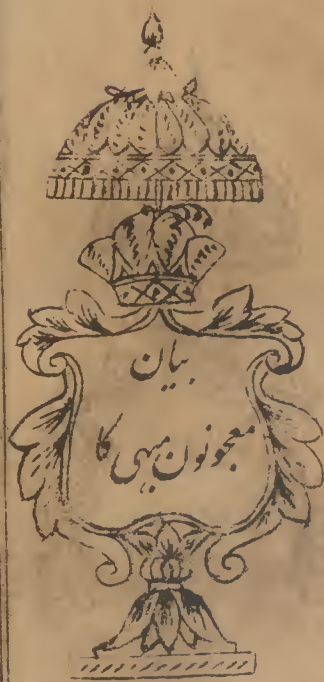 بیان
معجونون مبہی کا